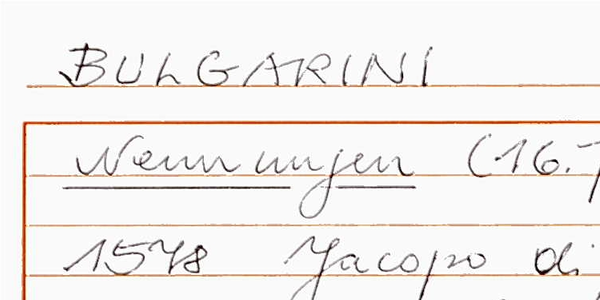 BULGARINI
Nennungen (16.
1578 Jacopo di